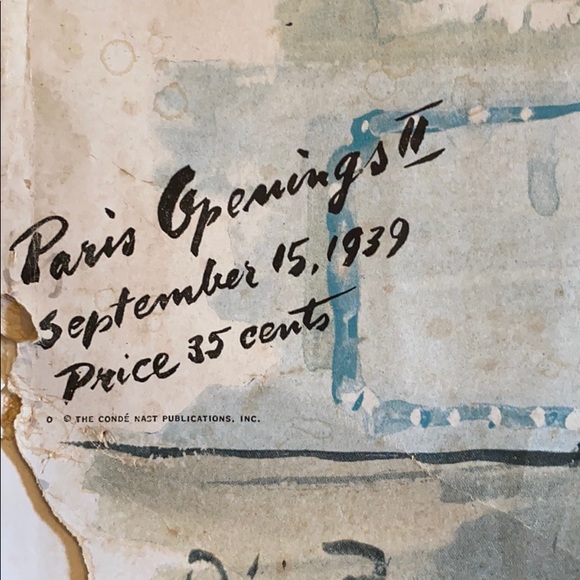 Paris Openings II
September 15, 1939
Price 35 cents
© THE CONDÉ NAST PUBLICATIONS, INC.